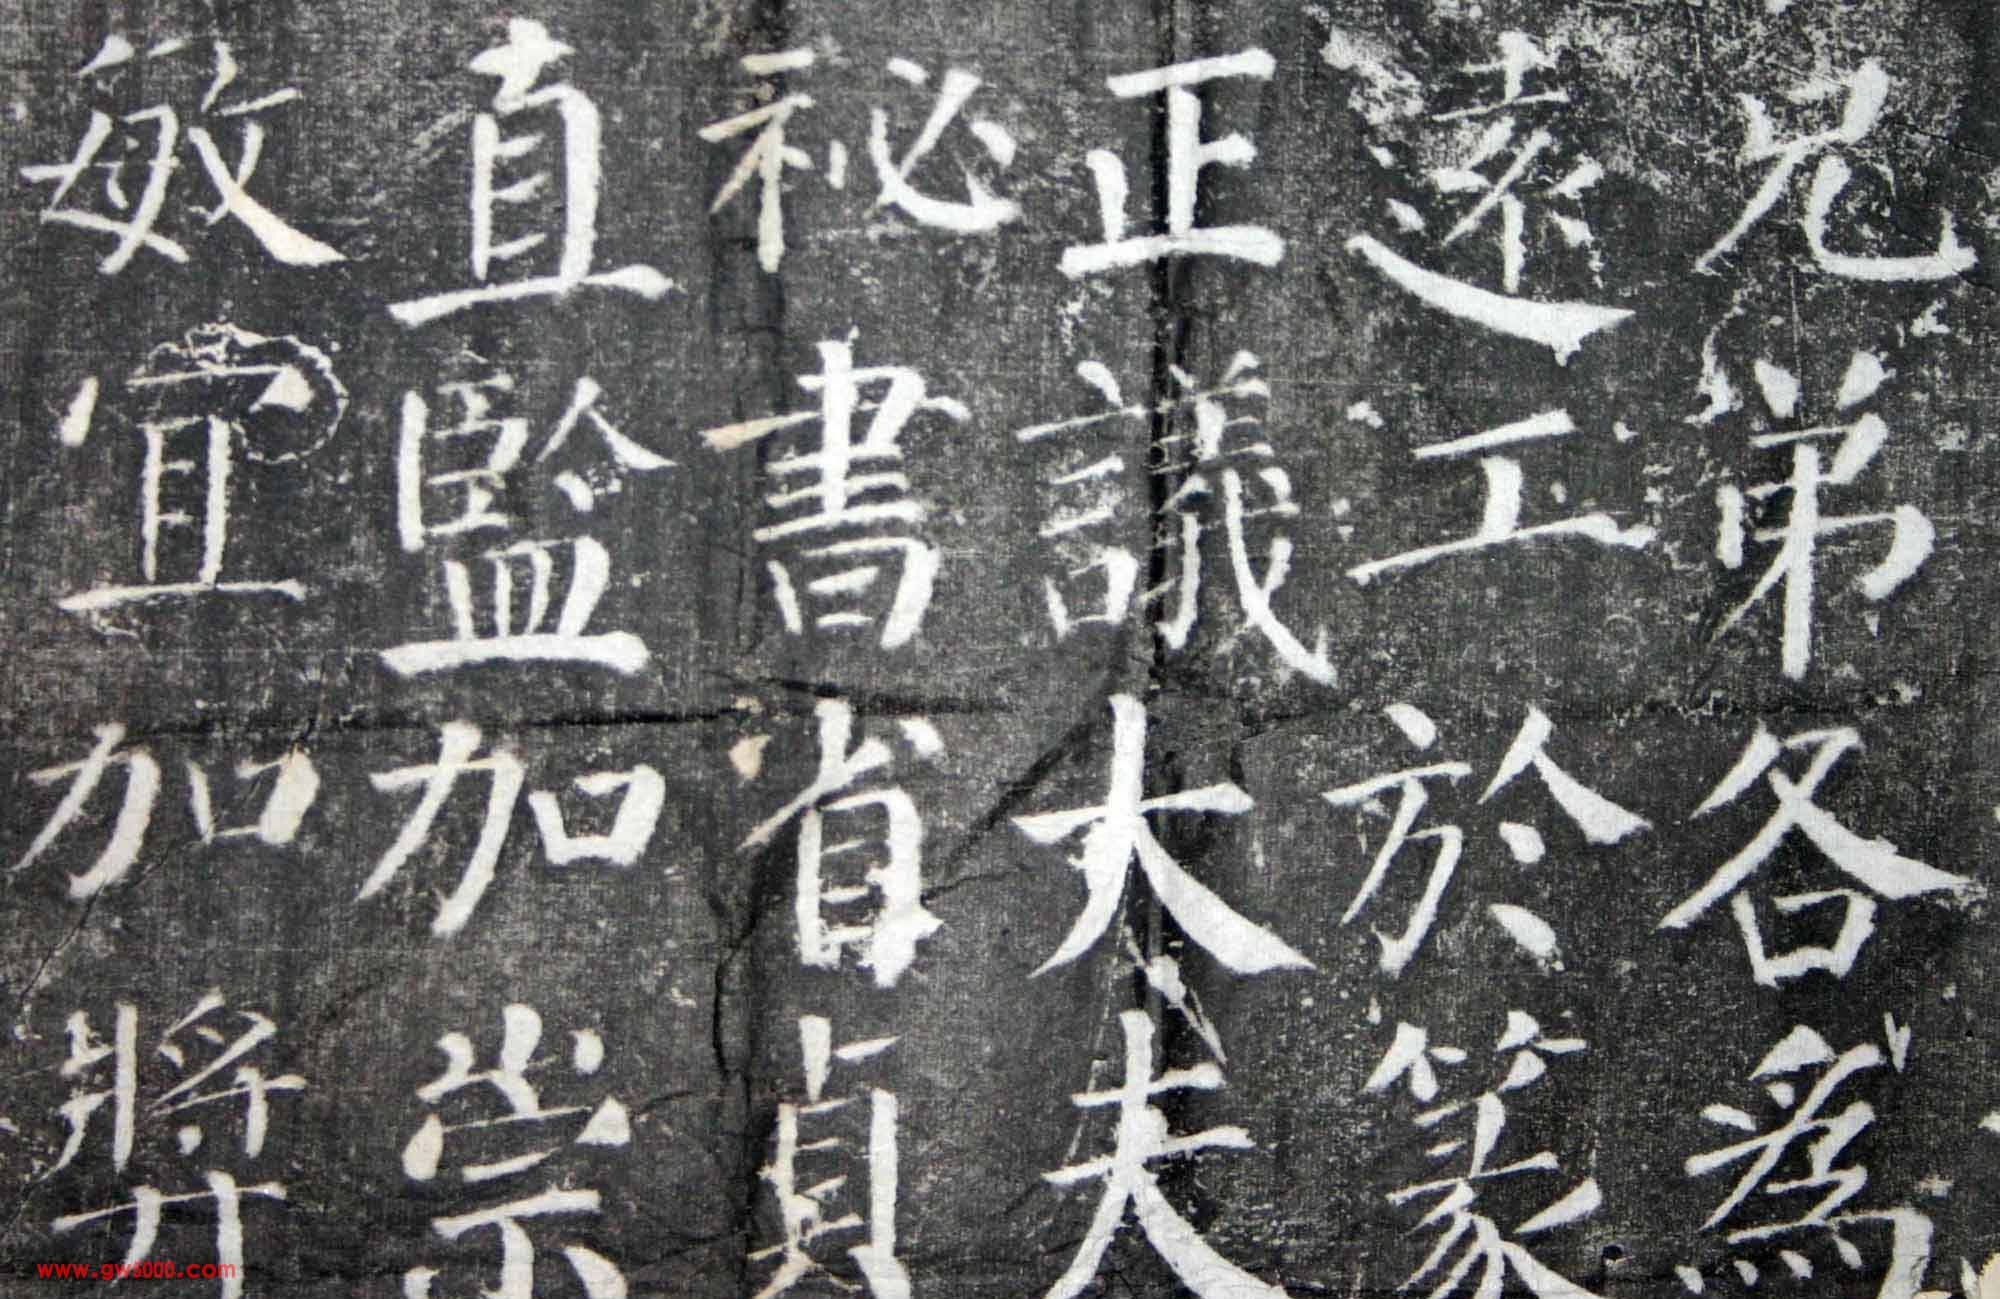 兄弟各爲
遠工於篆
正議大夫
祕書省貞
直監加崇
敏宜加奬
www.gw5000.com